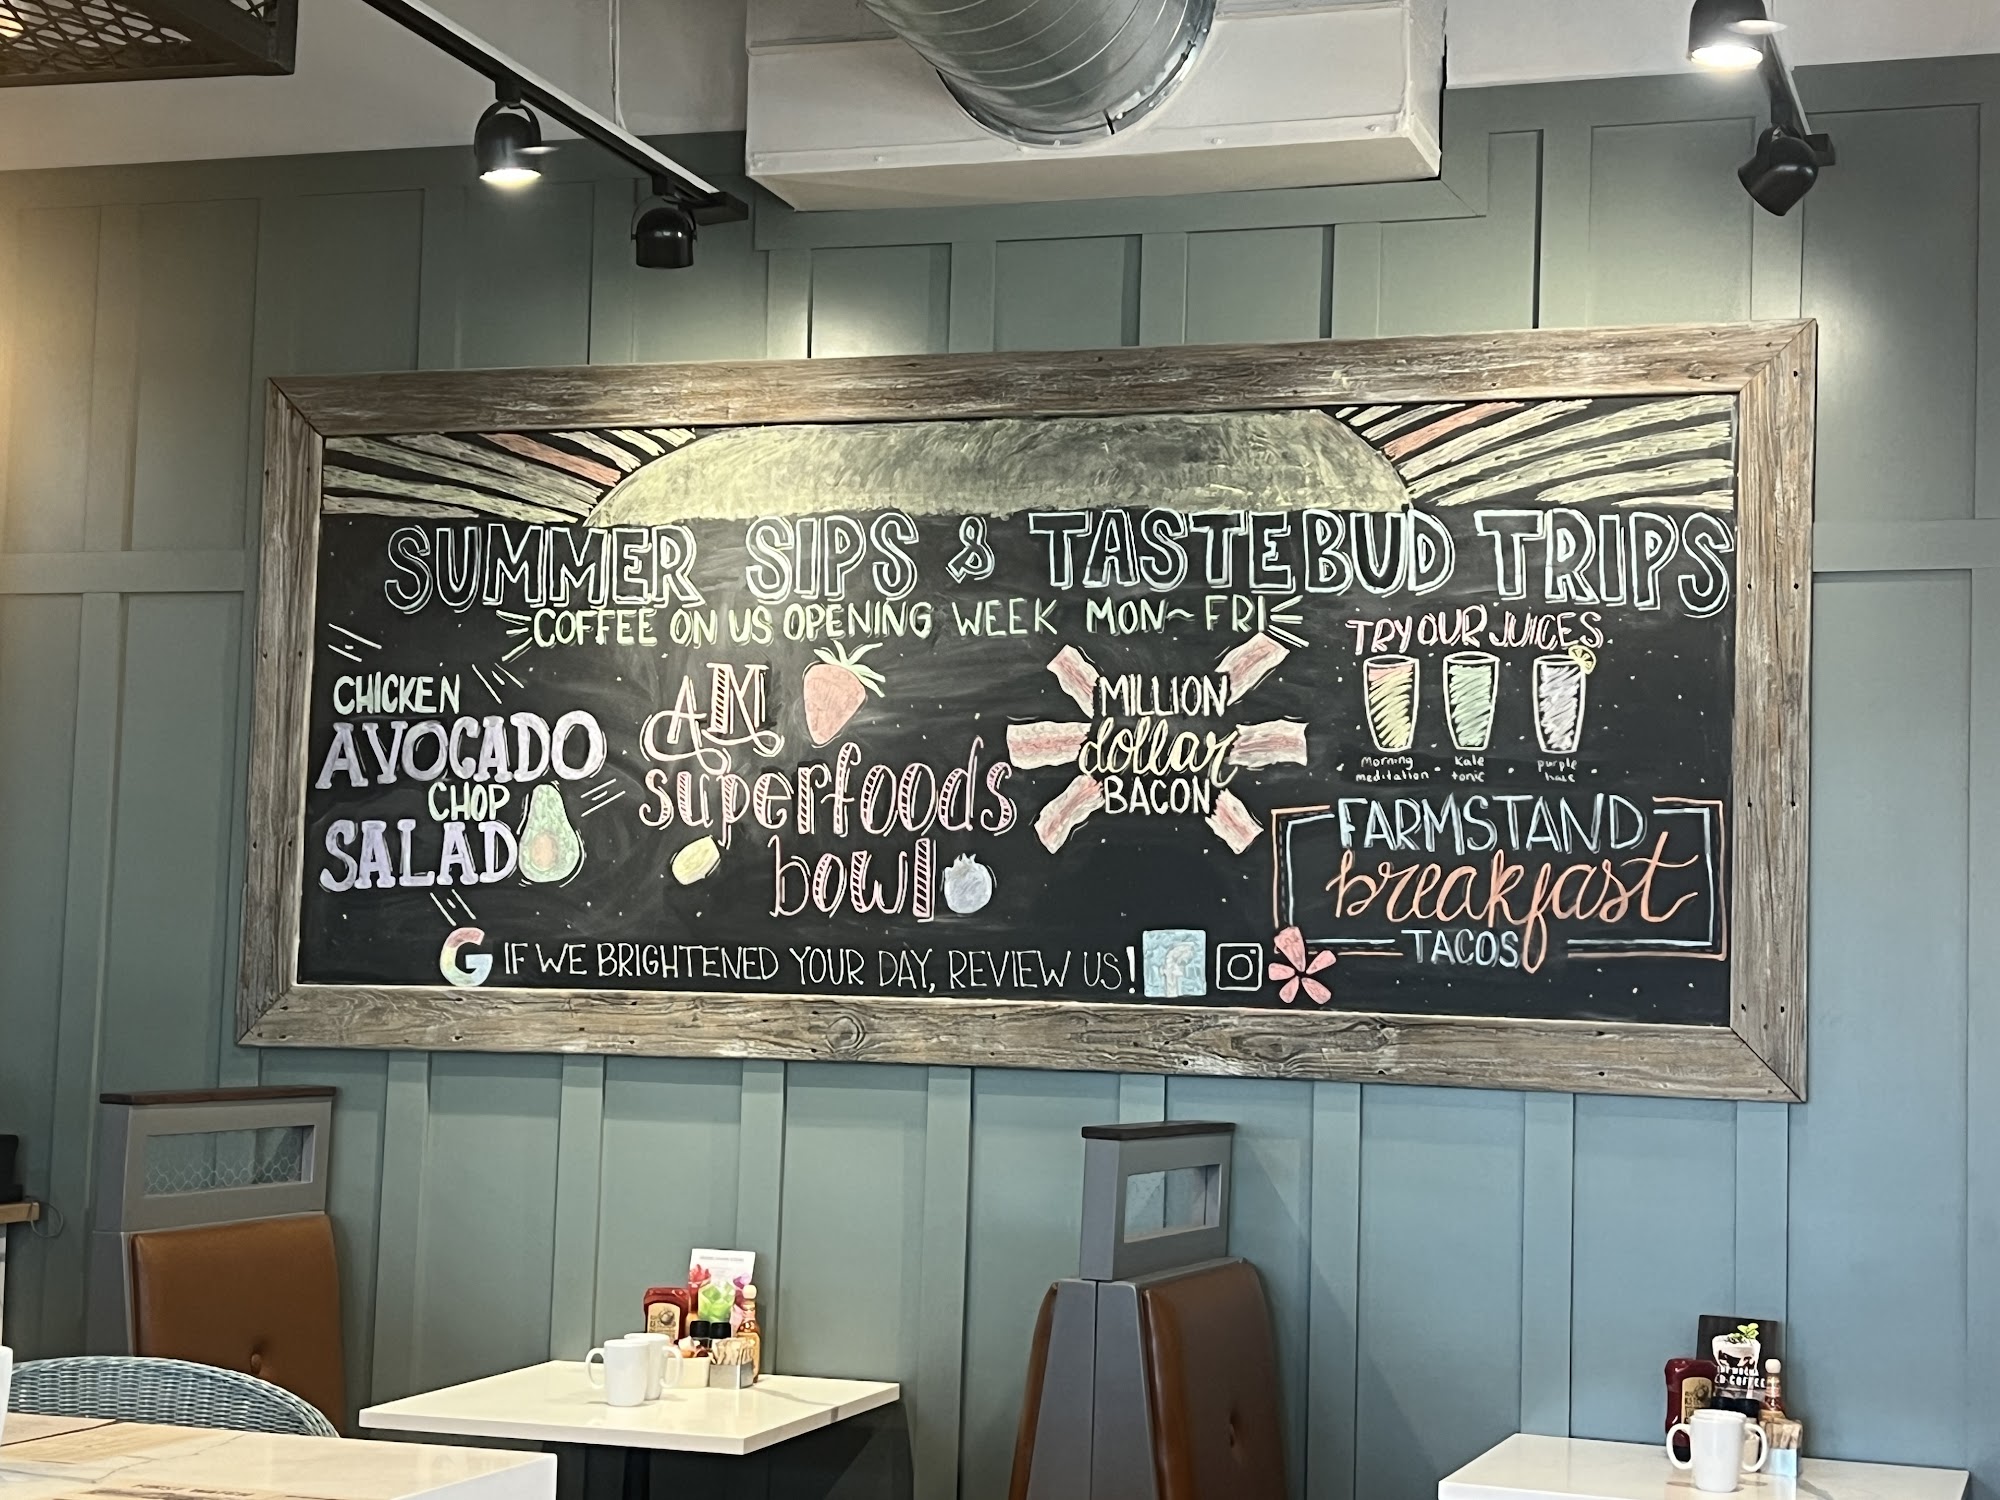 SUMMER SIPS & TASTEBUD TRIPS
COFFEE ON US OPENING WEEK MON~FRI
CHICKEN
AVOCADO
CHOP
SALAD
AM
superfoods
bowl
MILLION
dollar
BACON
TRY OUR JUICES
Morning
meditation
Kale
tonic
purple
haze
FARMSTAND
breakfast
TACOS
G IF WE BRIGHTENED YOUR DAY, REVIEW US! f